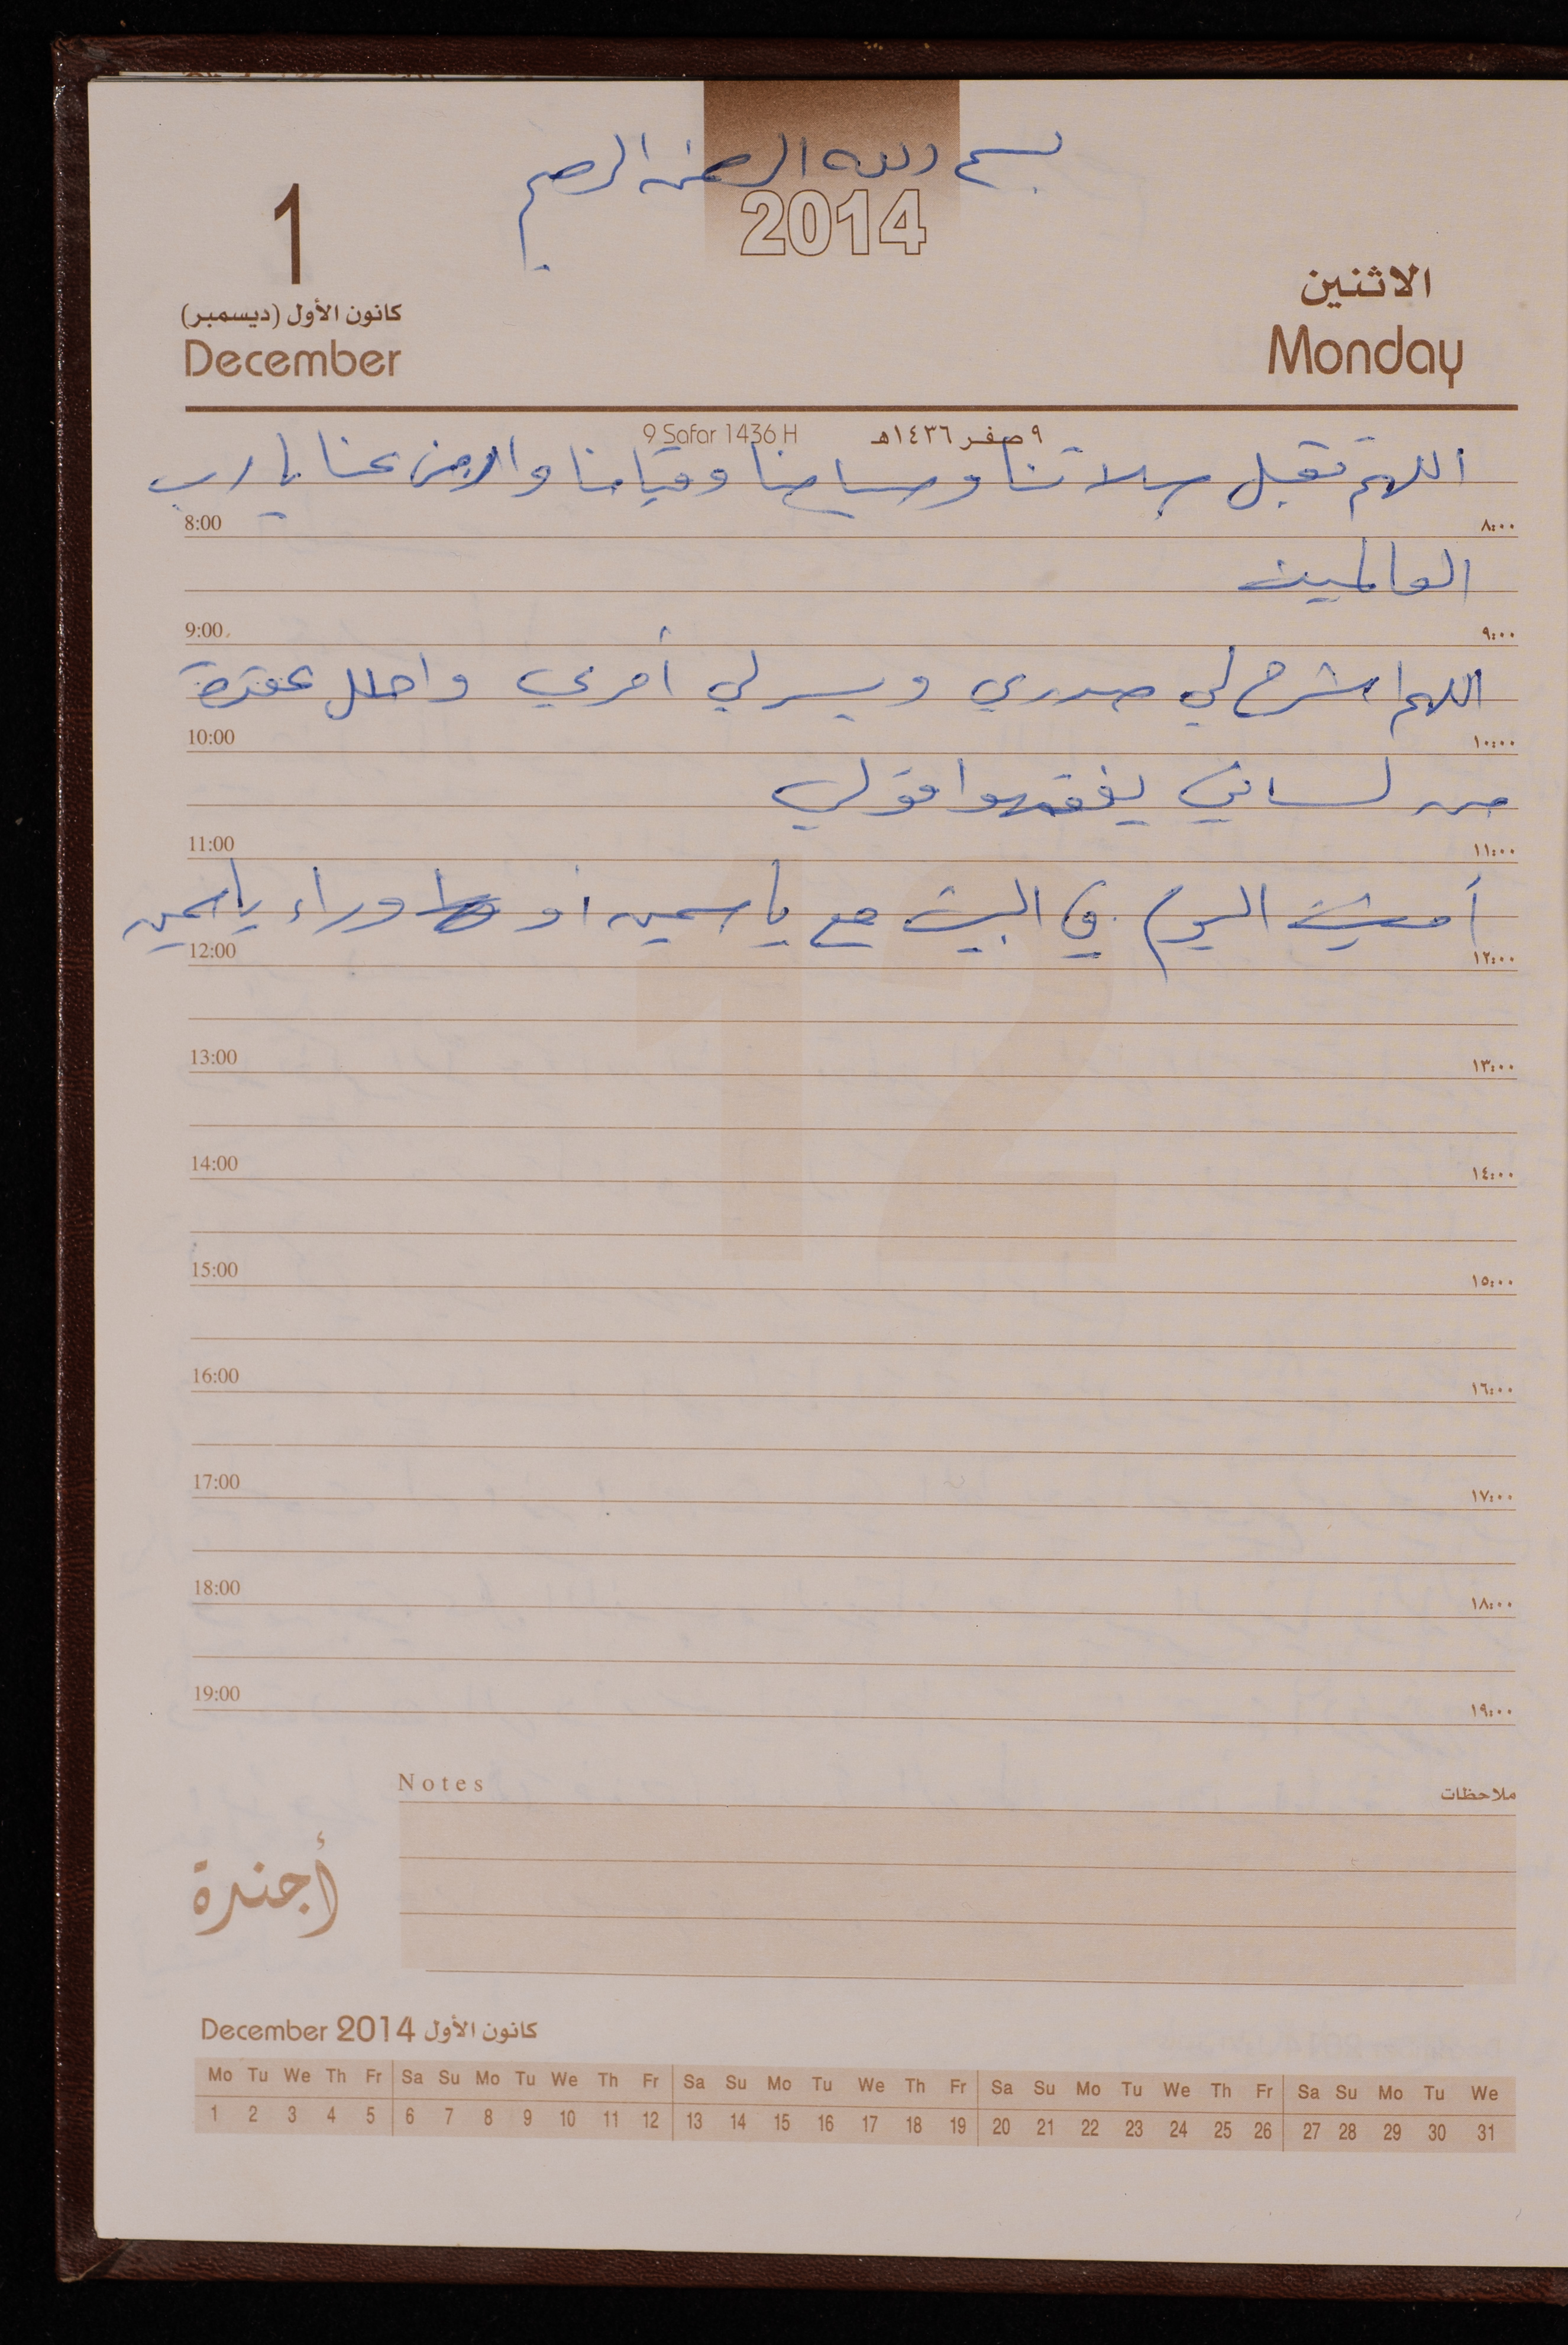 بسم الله الرحمن الرحيم
2014
1
كانون الأول (ديسمبر)
December
الاثنين
Monday
9 Safar 1436 H
٩ صفر ١٤٣٦هـ
اللهم تقبل سلاتنا وسيامنا وقيامنا وارض عنا يا رب
8:00 ٨:٠٠
العالمين
9:00 ٩:٠٠
اللهم اشرح لي صدري ويسر لي أمري واحلل عقدة
10:00 ١٠:٠٠
من لساني يفقهوا قولي
11:00 ١١:٠٠
أمضيت اليوم في البيت مع ياسمين أو وراء ياسمين
12:00 ١٢:٠٠
12
13:00 ١٣:٠٠
14:00 ١٤:٠٠
15:00 ١٥:٠٠
16:00 ١٦:٠٠
17:00 ١٧:٠٠
18:00 ١٨:٠٠
19:00 ١٩:٠٠
Notes ملاحظات
أجندة
December 2014 كانون الأول
Mo Tu We Th Fr Sa Su Mo Tu We Th Fr Sa Su Mo Tu We Th Fr Sa Su Mo Tu We Th Fr Sa Su Mo Tu We
1 2 3 4 5 6 7 8 9 10 11 12 13 14 15 16 17 18 19 20 21 22 23 24 25 26 27 28 29 30 31